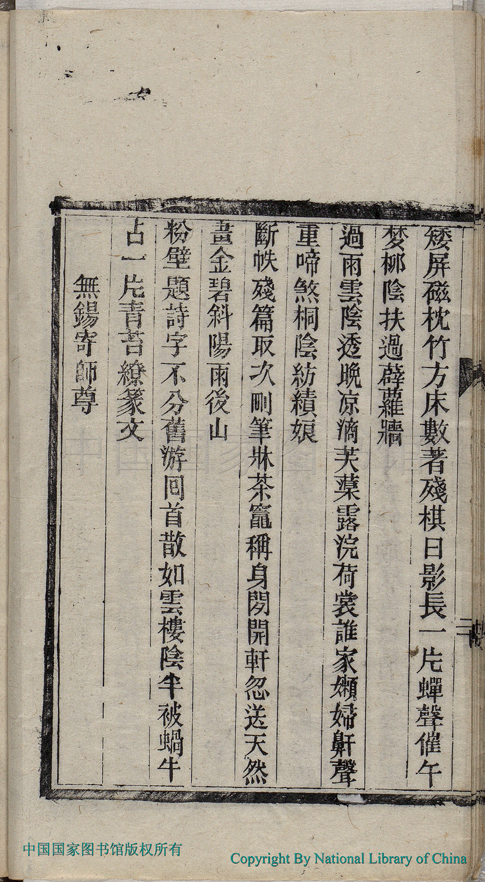 矮屏磁枕竹方床數著殘棋日影長一片蟬聲催午
梦栁陰扶過薜蘿牆
過雨雲陰透晚凉滴芙蕖露浣荷裳誰家嬾婦鼾聲
重啼煞桐陰紡績娘
斷帙殘篇取次刪筆牀茶竈稱身閒開軒忽送天然
畫金碧斜陽雨後山
粉壁題詩字不分舊游囘首散如雲樓陰半被蝸牛
占一片青苔繚篆文
無錫寄師尊
中国国家图书馆版权所有
Copyright By National Library of China